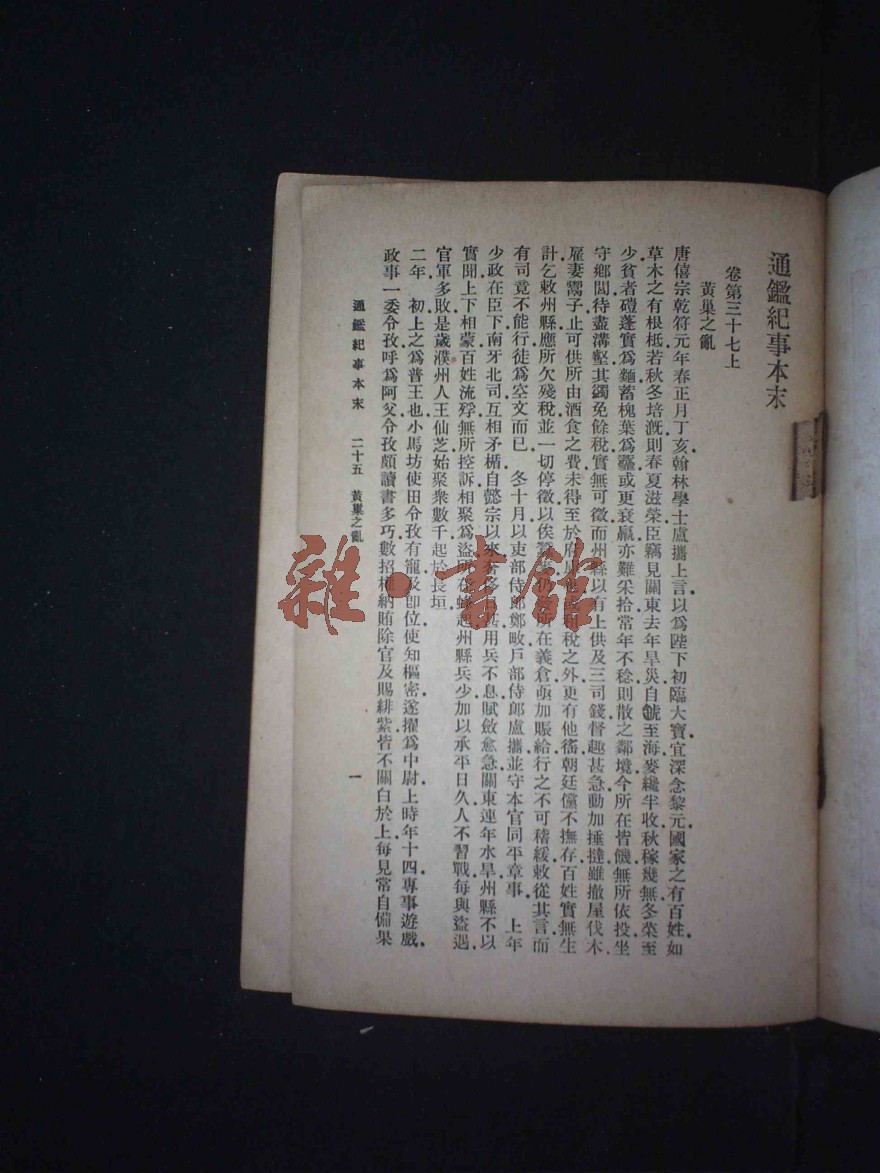 通鑑紀事本末
卷第三十七上
黃巢之亂
唐僖宗乾符元年春正月丁亥翰林學士盧攜上言以爲陛下初臨大寶宜深念黎元國家之有百姓如
草木之有根柢若秋冬培漑則春夏滋榮臣竊見關東去年旱災自虢至海麥纔半收秋稼幾無冬菜至
少貧者磑蓬實爲麵蓄槐葉爲虀或更衰羸亦難采拾常年不稔則散之鄰境今所在皆饑無所依投坐
守鄕閭待盡溝壑其蠲免餘稅實無可徵而州縣以有上供及三司錢督趣甚急動加捶撻雖撤屋伐木
雇妻鬻子止可供所由酒食之費未得至於府庫也或租稅之外更有他徭朝廷儻不撫存百姓實無生
計乞敕州縣應所欠殘稅並一切停徵以俟蠶麥仍發所在義倉亟加賑給行之不可稽緩敕從其言而
有司竟不能行徒爲空文而已 冬十月以吏部侍郎鄭畋戶部侍郎盧攜並守本官同平章事 上年
少政在臣下南牙北司互相矛楯自懿宗以來奢侈日甚用兵不息賦斂愈急關東連年水旱州縣不以
實聞上下相蒙百姓流殍無所控訴相聚爲盜所在蜂起州縣兵少加以承平日久人不習戰每與盜遇
官軍多敗是歲濮州人王仙芝始聚衆數千起於長垣
二年 初上之爲普王也小馬坊使田令孜有寵及卽位使知樞密遂擢爲中尉上時年十四專事遊戲
政事一委令孜呼爲阿父令孜頗讀書多巧數招權納賄除官及賜緋紫皆不關白於上每見常自備果
通鑑紀事本末 二十五 黃巢之亂 一
雜·書館